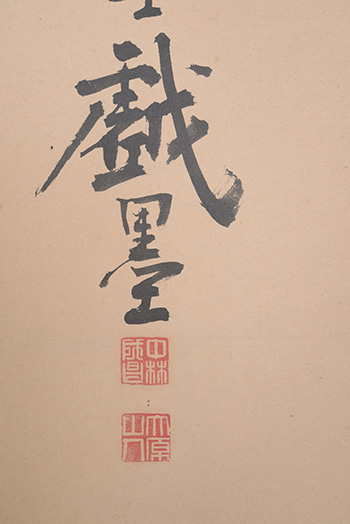 戯墨
中林成昌
大原山人